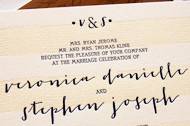 • v & s •
MRS. RYAN JEROME
MR. AND MRS. THOMAS KLINE
REQUEST THE PLEASURE OF YOUR COMPANY
AT THE MARRIAGE CELEBRATION OF
veronica danielle
AND
stephen joseph